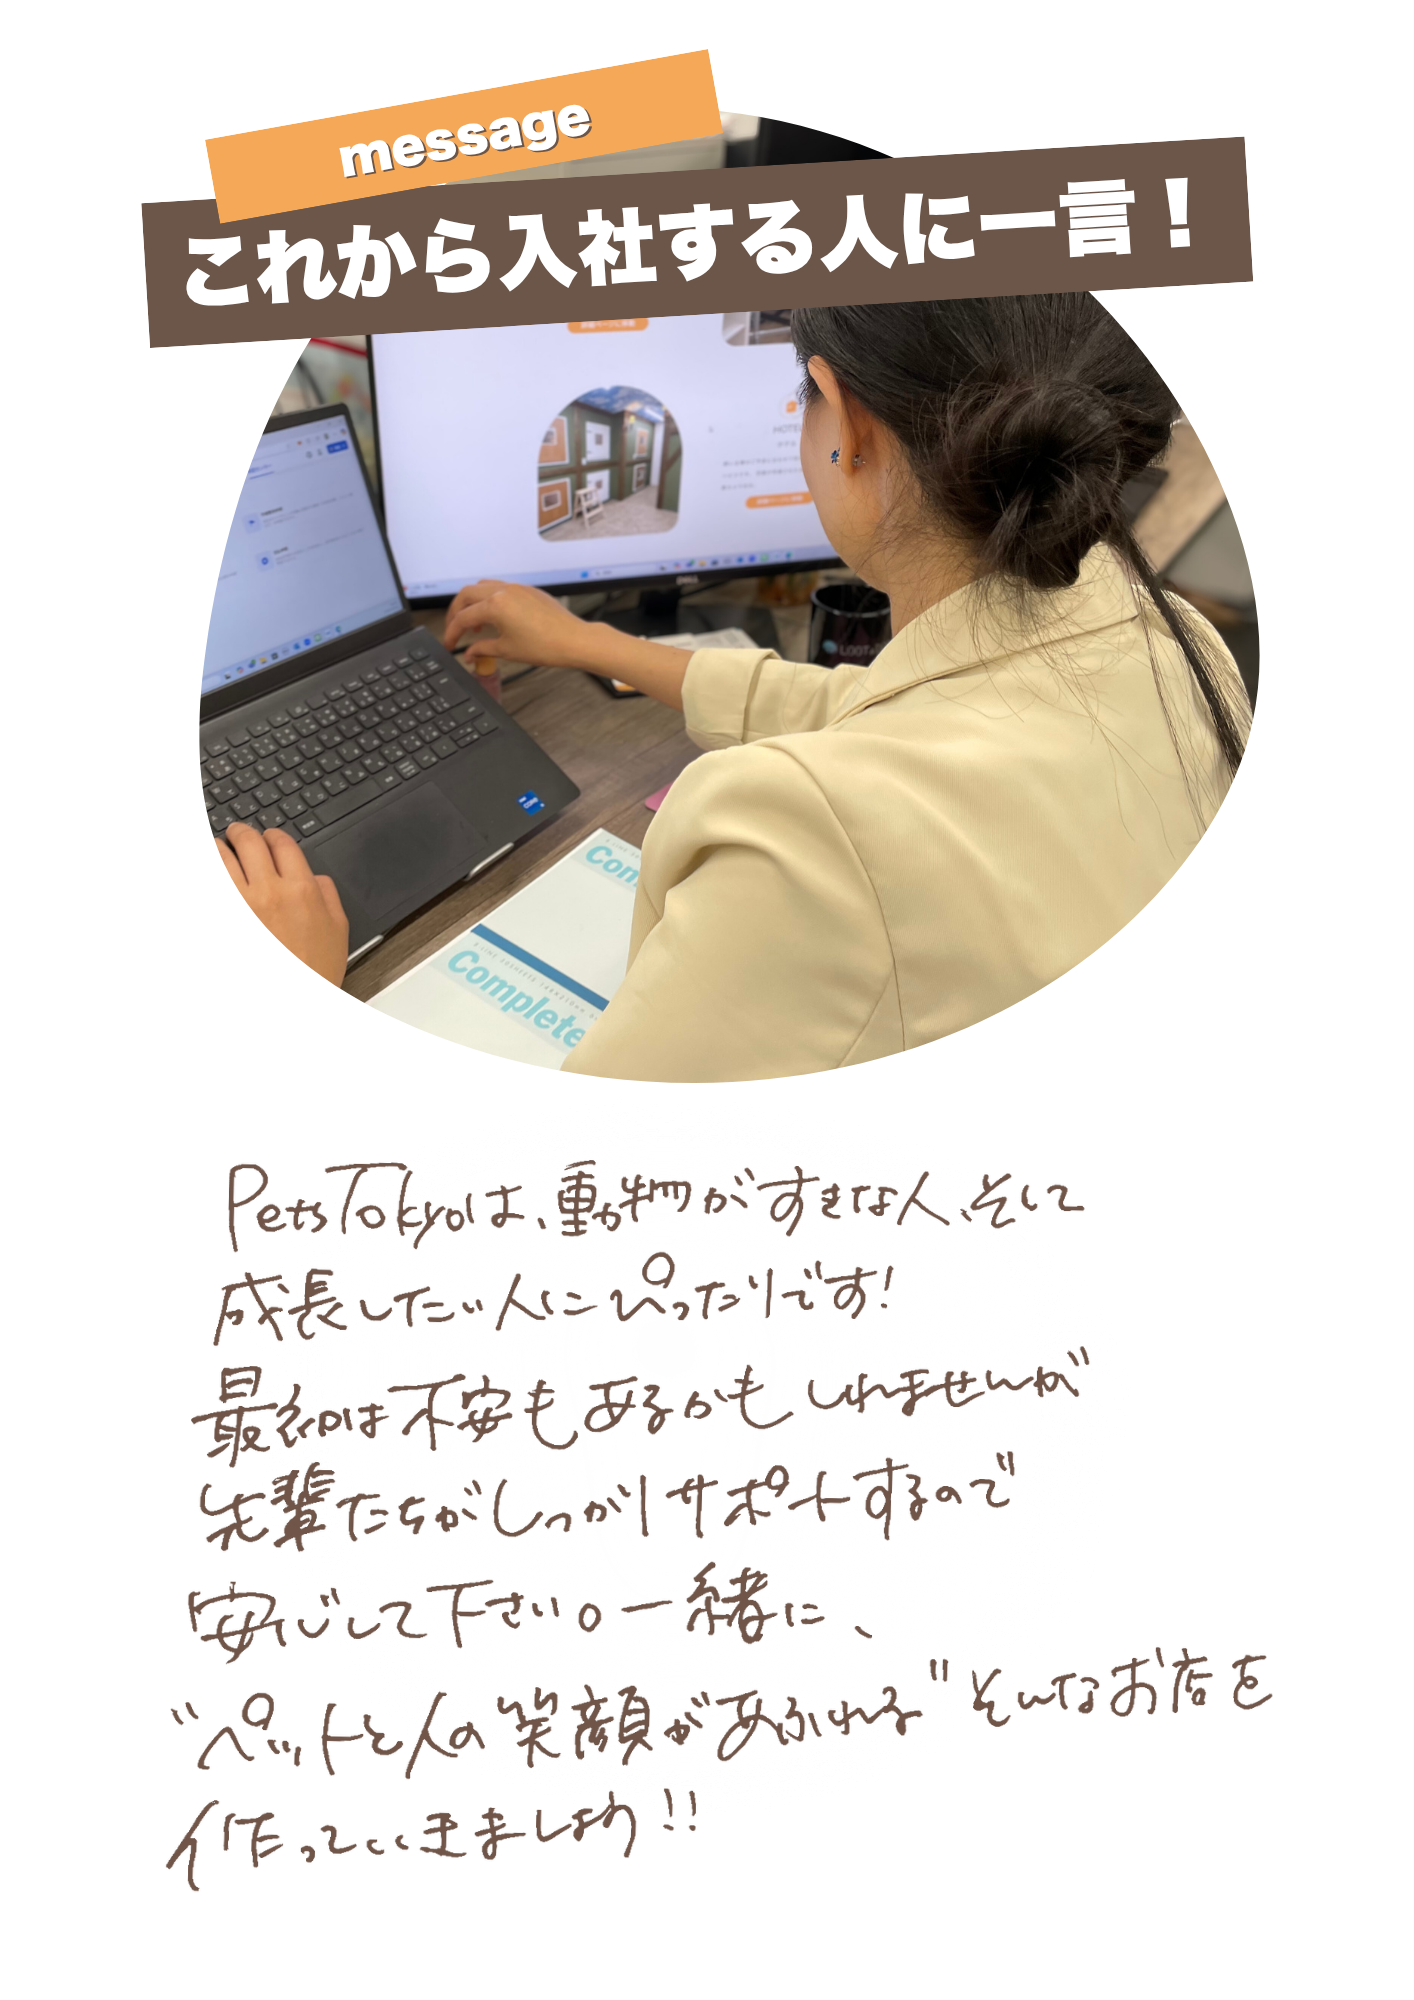 message
これから入社する人に一言！
HOTEL
DELL
LOOT
Com
Complete
PetsTokyoは、動物がすきな人、そして
成長したい人にぴったりです!
最初は不安もあるかもしれませんが
先輩たちがしっかりサポートするので
安心して下さい。一緒に、
"ペットと人の笑顔があふれる"そんなお店を
作っていきましょう!!